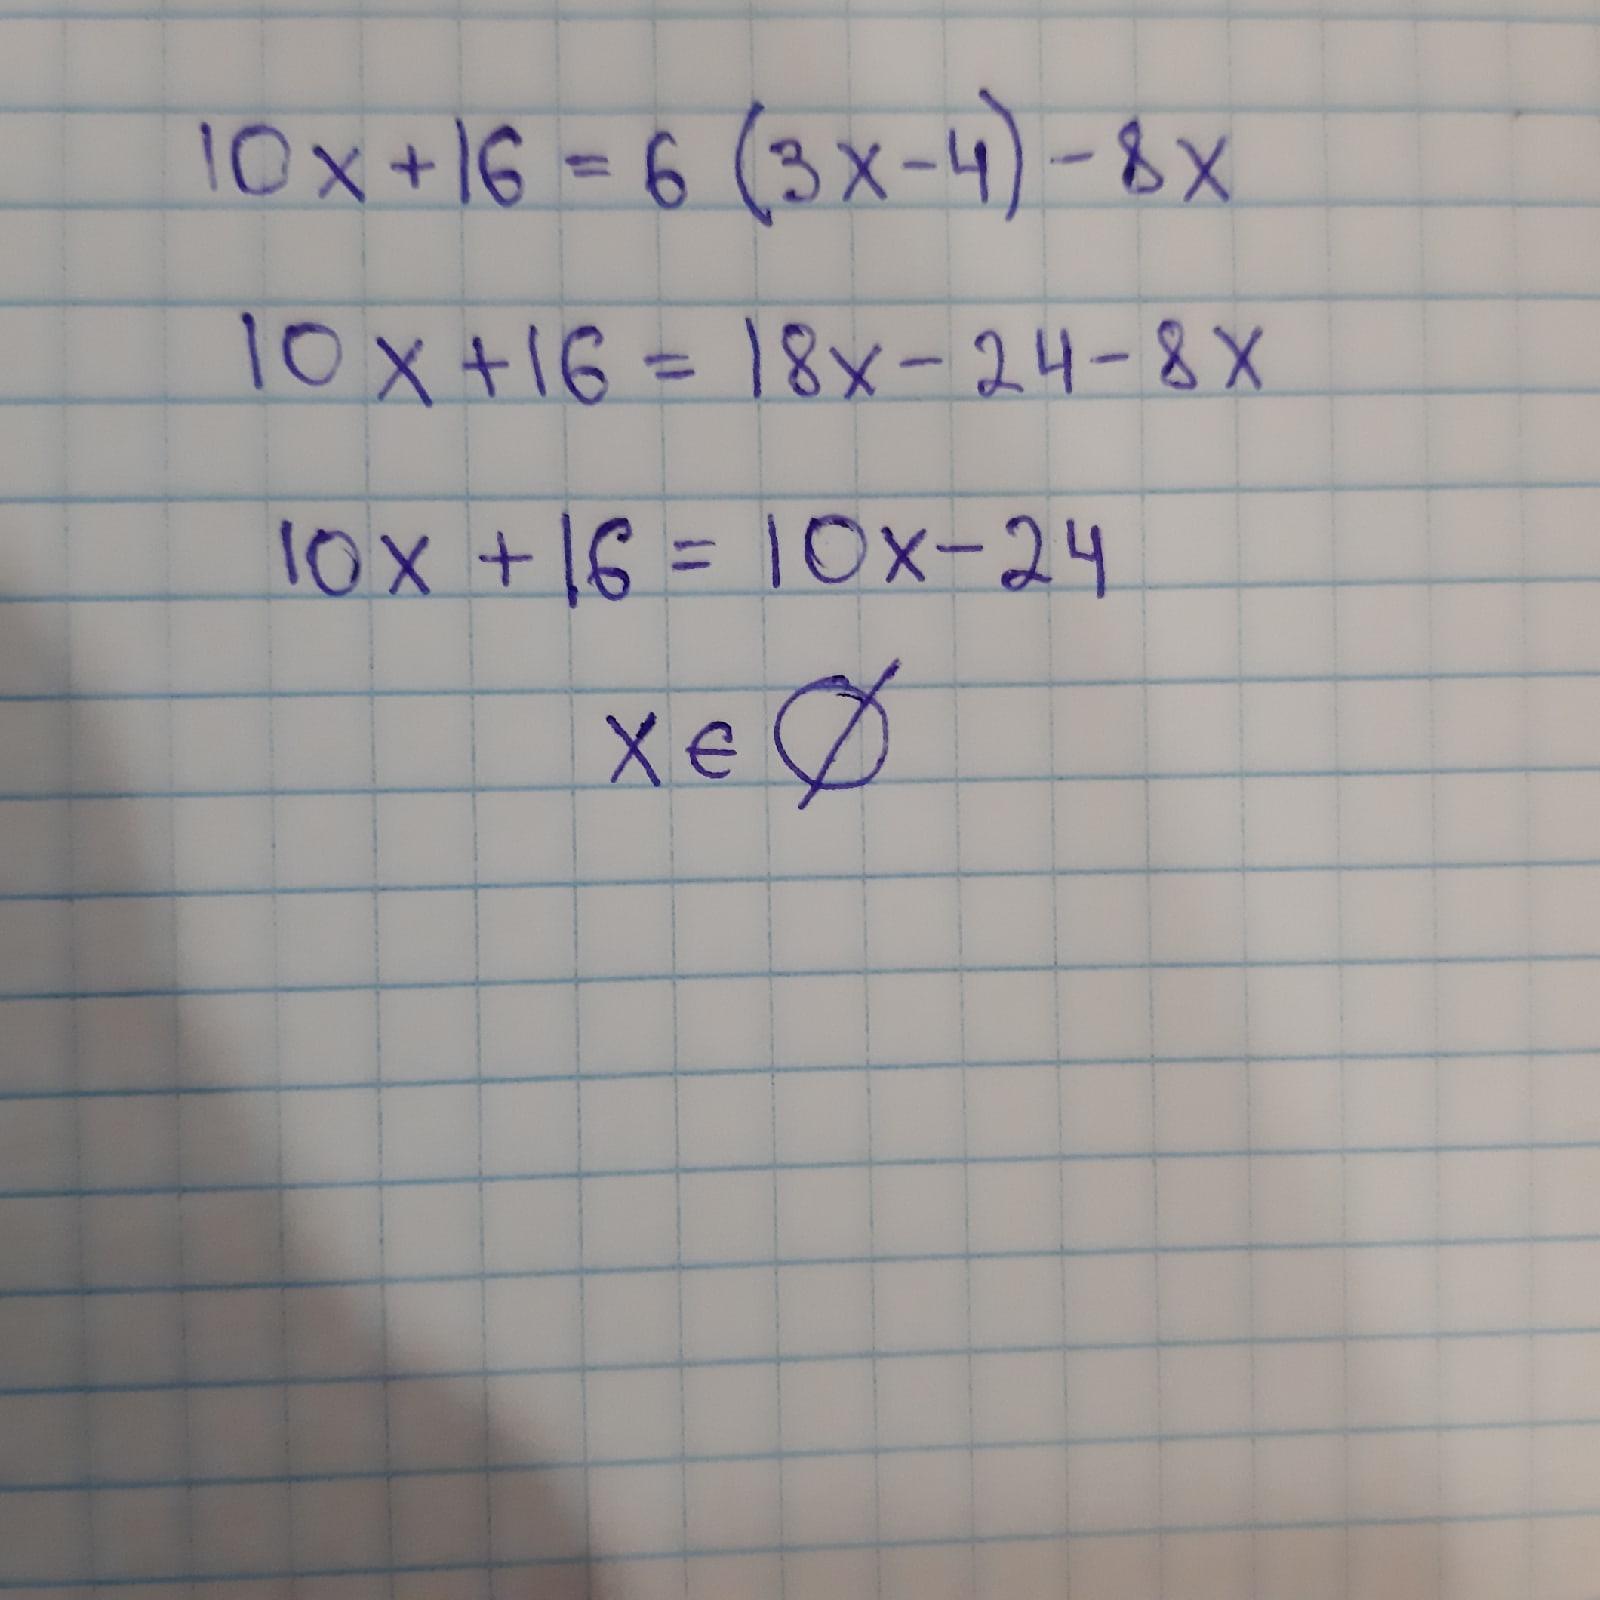 10x + 16 = 6 (3x - 4) - 8x
10x + 16 = 18x - 24 - 8x
10x + 16 = 10x - 24
x ∈ ∅